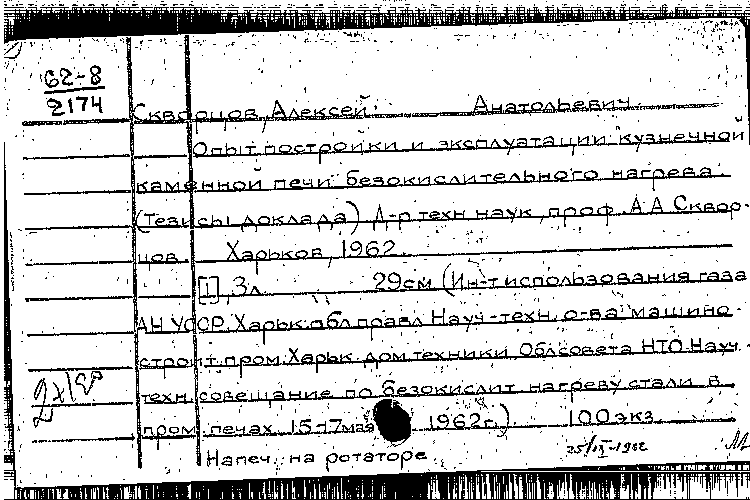 62-8
2174
Скворцов, Алексей Анатольевич.
Опыт постройки и эксплуатации кузнечной
каменной печи безокислительного нагрева.
(Тезисы доклада) Д-р техн. наук, проф. А. А. Сквор-
цов. Харьков, 1962.
[1], 3 л. 29 см (Ин-т использования газа
АН УССР. Харьк. обл. правл. Науч.-техн. о-ва машино-
строит. пром. Харьк. дом техники Облсовета НТО. Науч.-
техн. совещание по безокислит. нагреву стали в
пром. печах 15-17 мая 1962 г.) 100 экз.
Напеч. на ротаторе